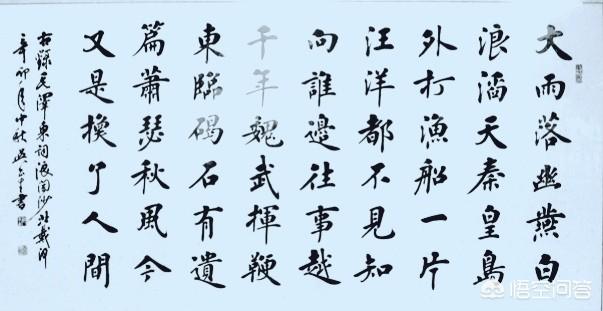 大雨落幽燕白
浪滔天秦皇島
外打漁船一片
汪洋都不見知
向誰邊往事越
千年魏武揮鞭
東臨碣石有遺
篇蕭瑟秋風今
又是換了人間
右錄毛澤東詞浪淘沙北戴河
辛卯中秋吳書
悟空问答